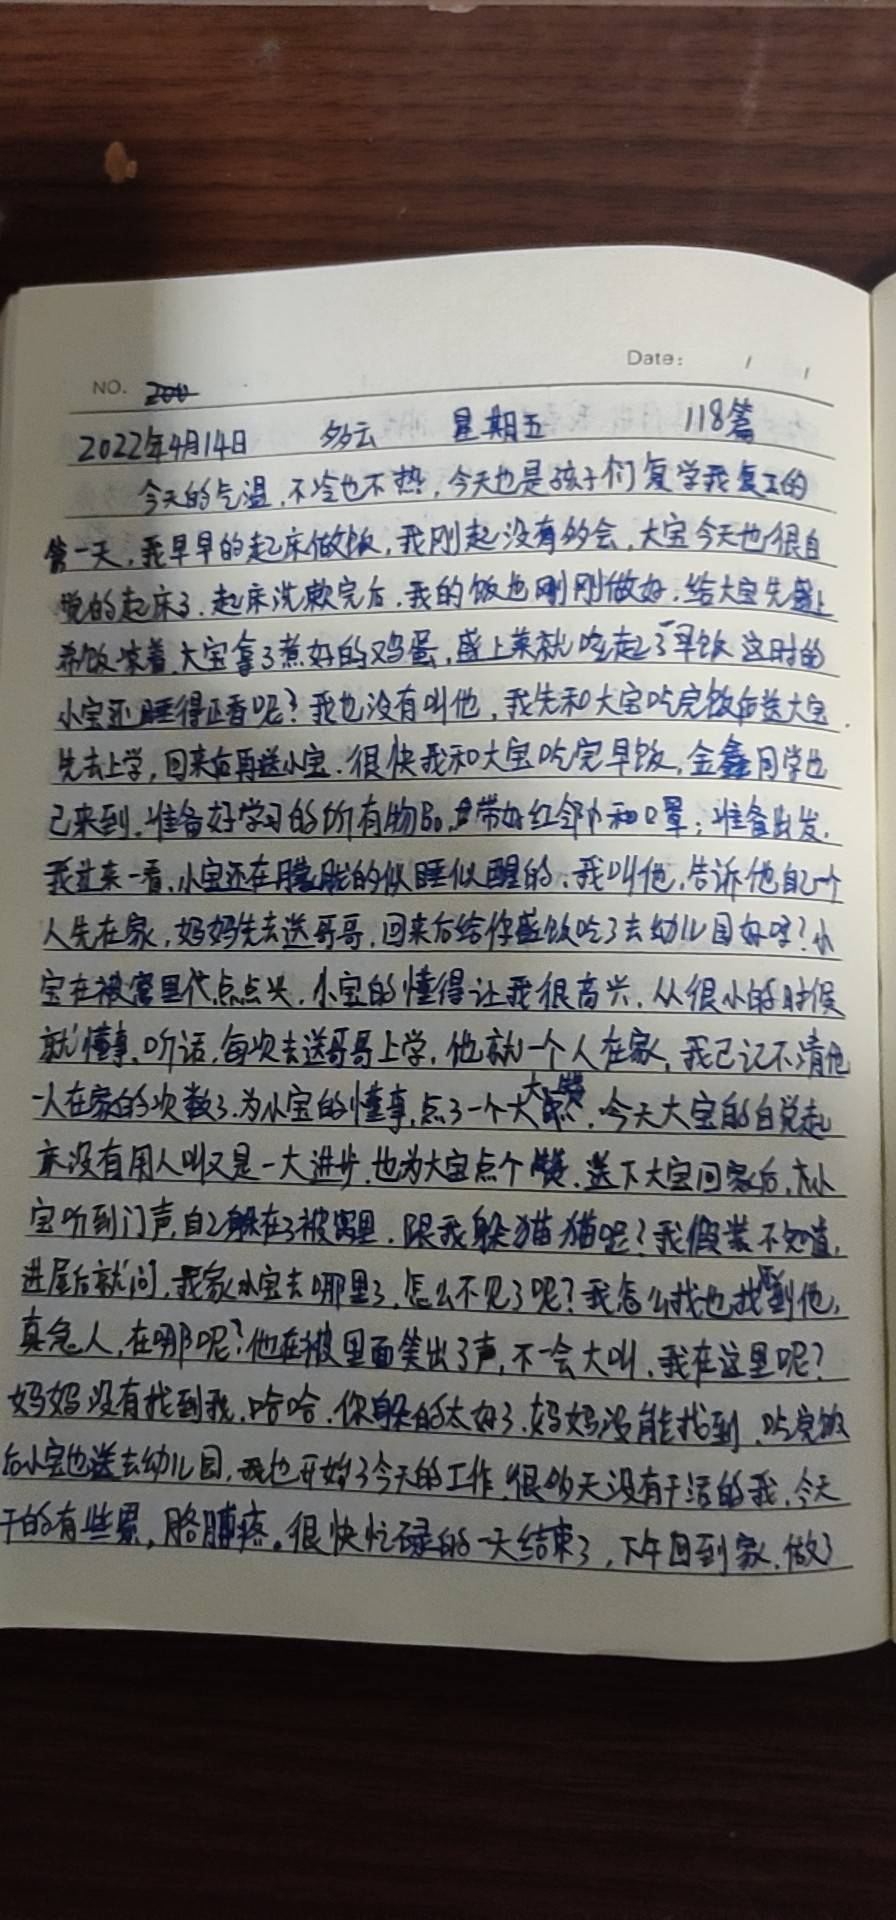 Date: / /
NO. 200
2022年4月14日 多云 星期五 118篇
今天的气温,不冷也不热,今天也是孩子们复学我复工的
第一天,我早早的起床做饭,我刚起没有多会,大宝今天也很自
觉的起床了.起床洗漱完后.我的饭也刚刚做好.给大宝先盛上
希饭凉着.大宝拿了煮好的鸡蛋,盛上菜就吃起了早饭这时的
小宝还睡得正香呢?我也没有叫他,我先和大宝吃完饭后送大宝
先去上学,回来后再送小宝.很快我和大宝吃完早饭,金鑫同学也
已来到.准备好学习的所有物品,带好红邻巾和口罩;准备出发.
我进来一看,小宝还在朦胧的似睡似醒的.我叫他,告诉他自己一个
人先在家,妈妈先去送哥哥,回来后给你盛饭吃了去幼儿园好吗?小
宝在被窝里代点点头.小宝的懂得让我很高兴.从很小的时候
就懂事,听话,每次去送哥哥上学,他就一个人在家,我已记不清他
一人在家的次数了.为小宝的懂事,点了一个大大赞.今天大宝的自觉起
床没有用人叫又是一大进步.也为大宝点个赞.送下大宝回家后,小
宝听到门声,自己躲在了被窝里.跟我躲猫猫呢?我假装不知道,
进屋后就问,我家小宝去哪里了,怎么不见了呢?我怎么找也找不到他,
真急人,在哪呢?他在被里面笑出了声,不一会大叫.我在这里呢?
妈妈没有找到我.哈哈.你躲的太好了.妈妈没能找到.吃完饭
后小宝也送去幼儿园,我也开始了今天的工作.很多天没有干活的我,今天
干的有些累,胳膊疼。很快忙碌的一天结束了,下午回到家.做了